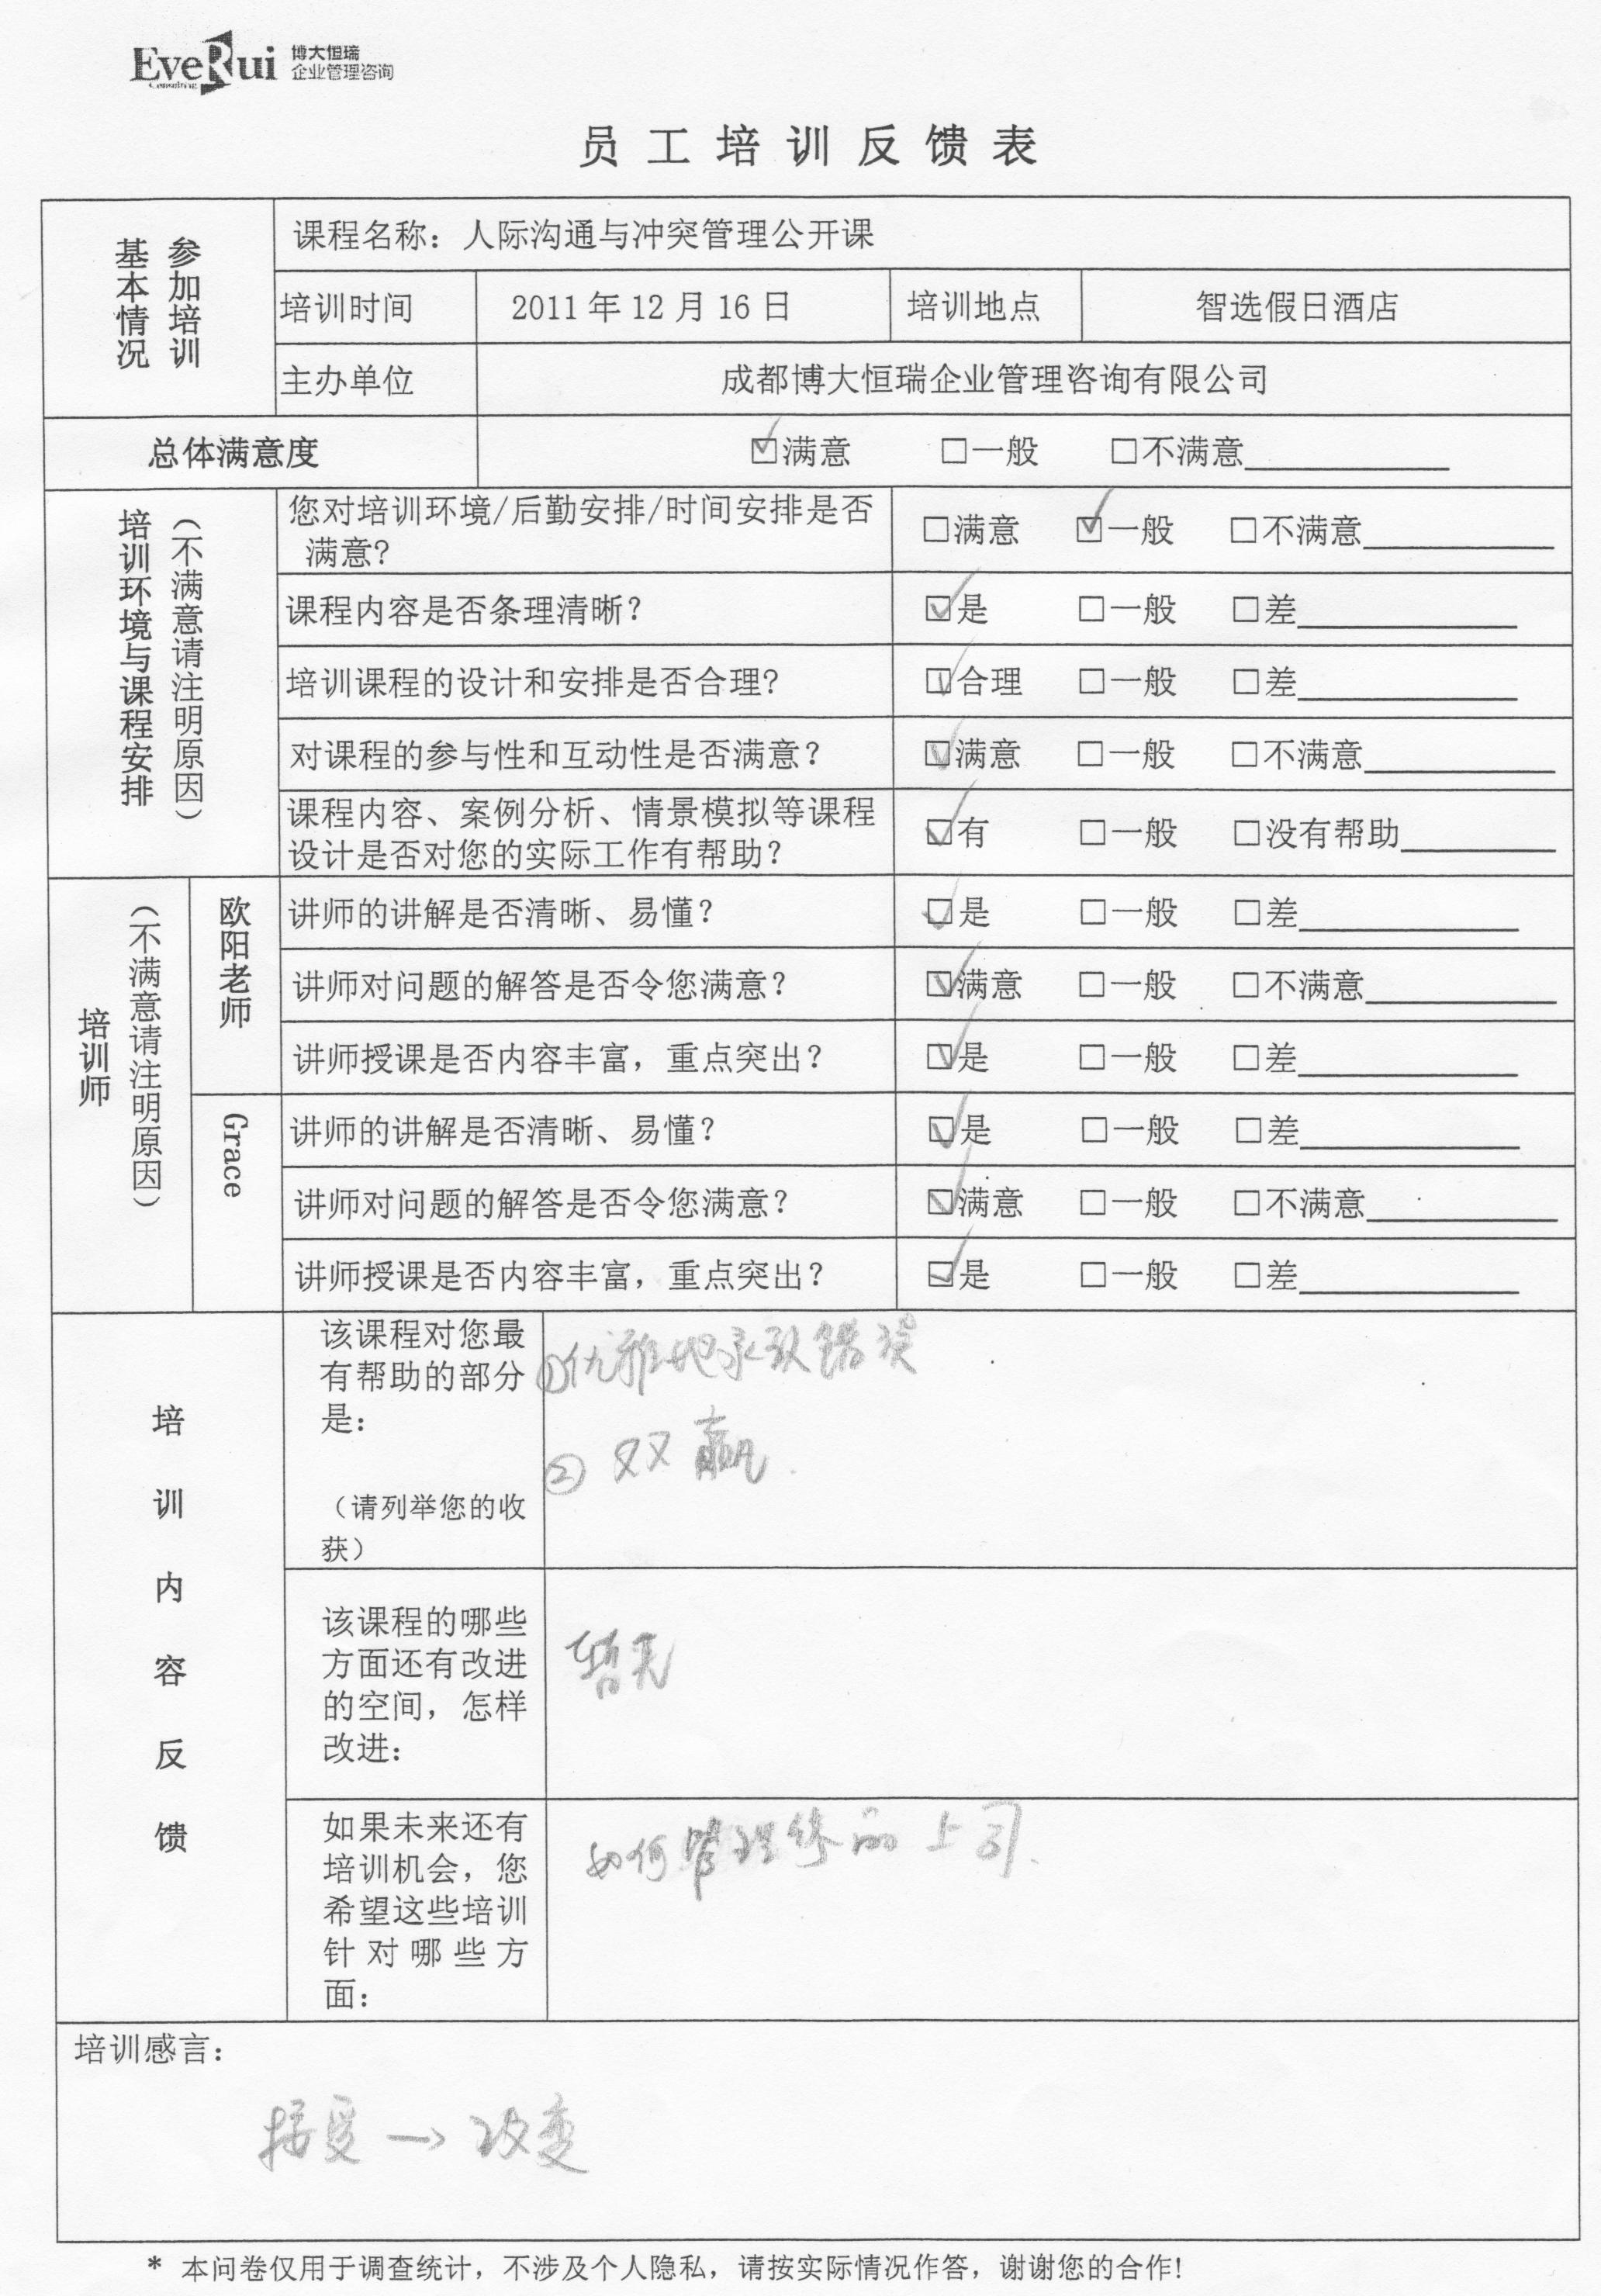 EveRui 博大恒瑞
Consulting 企业管理咨询
员工培训反馈表
参加培训
基本情况
课程名称：人际沟通与冲突管理公开课
培训时间 2011年12月16日 培训地点 智选假日酒店
主办单位 成都博大恒瑞企业管理咨询有限公司
总体满意度 ☑满意 □一般 □不满意
培训环境与课程安排
（不满意请注明原因）
您对培训环境/后勤安排/时间安排是否
满意？ □满意 ☑一般 □不满意
课程内容是否条理清晰？ ☑是 □一般 □差
培训课程的设计和安排是否合理？ ☑合理 □一般 □差
对课程的参与性和互动性是否满意？ ☑满意 □一般 □不满意
课程内容、案例分析、情景模拟等课程
设计是否对您的实际工作有帮助？ ☑有 □一般 □没有帮助
培训师
（不满意请注明原因）
欧阳老师
讲师的讲解是否清晰、易懂？ ☑是 □一般 □差
讲师对问题的解答是否令您满意？ ☑满意 □一般 □不满意
讲师授课是否内容丰富，重点突出？ ☑是 □一般 □差
Grace
讲师的讲解是否清晰、易懂？ ☑是 □一般 □差
讲师对问题的解答是否令您满意？ ☑满意 □一般 □不满意
讲师授课是否内容丰富，重点突出？ ☑是 □一般 □差
培训内容反馈
该课程对您最
有帮助的部分
是：
（请列举您的收
获）
①优雅地承认错误
②双赢.
该课程的哪些
方面还有改进
的空间，怎样
改进：
暂无
如果未来还有
培训机会，您
希望这些培训
针对哪些方
面：
如何管理你的上司.
培训感言：
接受→改变
* 本问卷仅用于调查统计，不涉及个人隐私，请按实际情况作答，谢谢您的合作!